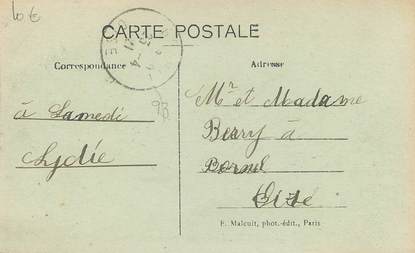 10 €
CARTE POSTALE
Correspondance
Adresse
à Samedi
Lydie
Mr et Madame
Berry à
Bornel
Oise
F. Malcuit, phot.-édit., Paris